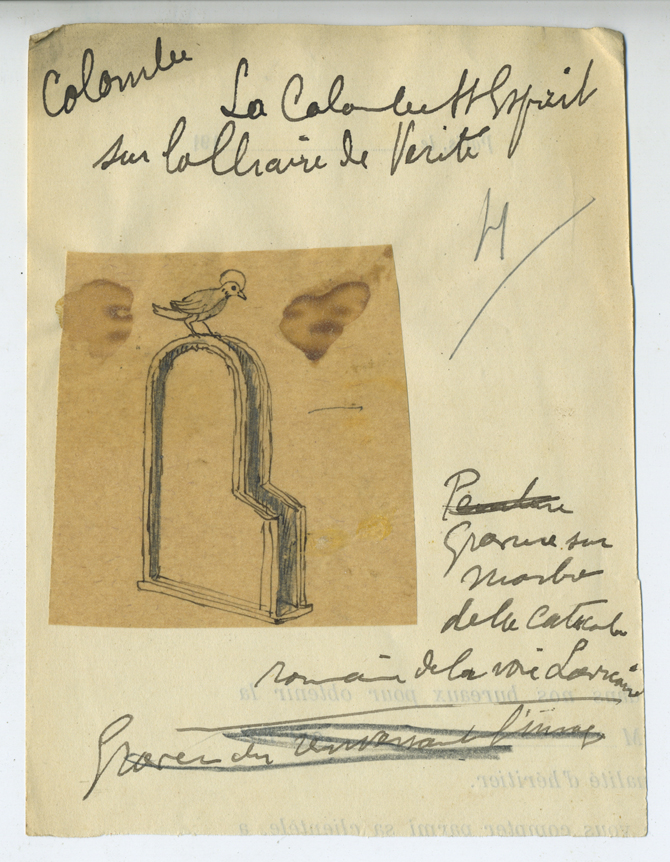 Colombe
La Colombe St Esprit
sur la Chaire de Verité
4
Peinture
Gravure sur
Marbre
de la Catacombe
romaine de la voie
Graveur du l'image
dans nos bureaux pour obtenir la
M
qualité d'héritier.
vous compter parmi sa clientèle, a